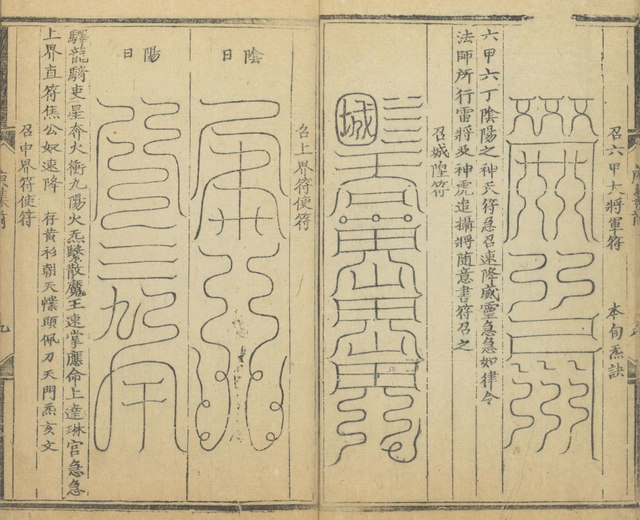 召六甲大將軍符
本旬炁訣
六甲六丁陰陽之神天符急召速降威靈急急如律令
法師所行雷將及神虎追攝將隨意書符召之
召城隍符
城
召上界符使符
陰日
陽日
驛龍騎吏星奔火衝九陽火炁繫散魔王速掌應命上達琳宮急急
上界直符焦公奴速降
存黃衫朝天幞頭佩刀天門炁亥文
召中界符使符